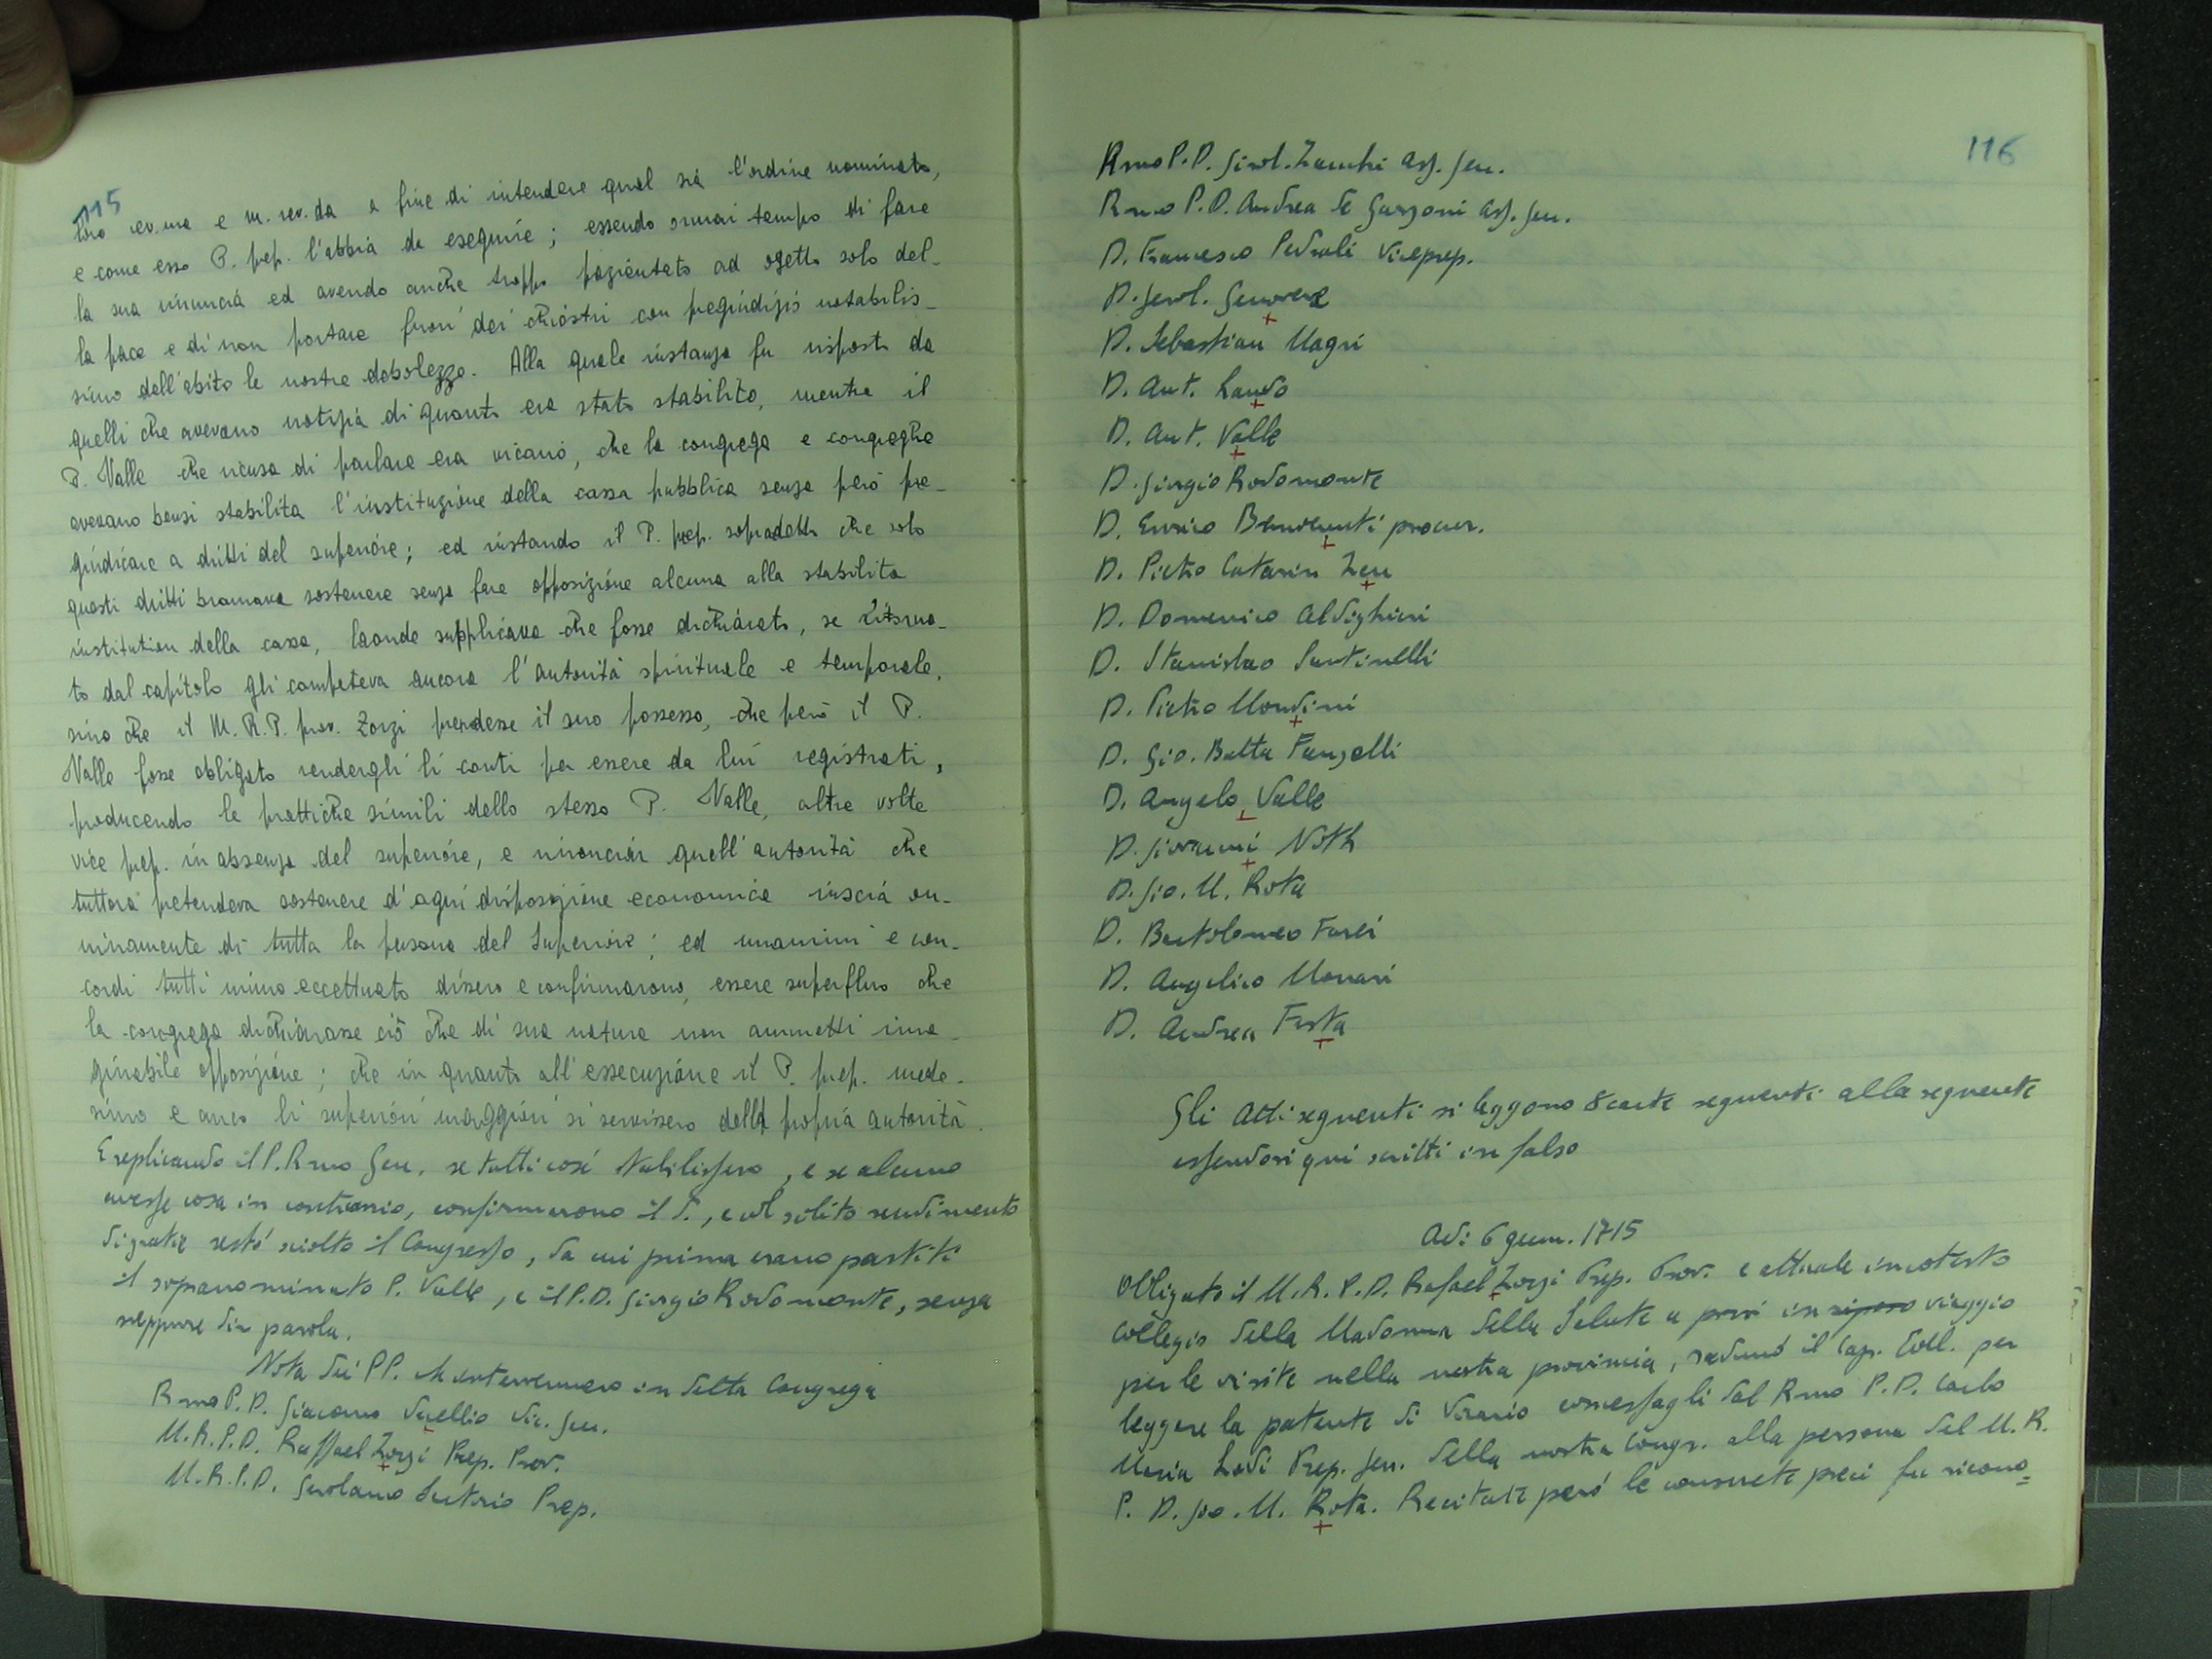 115
loro rev.me e m. rev.da a fine di intendere qual sia l'ordine nominato,
e come esso P. prep. l'abbia da eseguire; essendo ormai tempo di fare
la sua rinuncia ed avendo anche troppo pazientato ad ogetto solo del-
la pace e di non portare fuori dei chiostri con pregiudizio notabilis-
simo dell'abito le nostre debolezze. Alla quale instanza fu risposto da
quelli che avevano notizia di quanto era stato stabilito, mentre il
P. Valle che ricusa di parlare era vicario, che la congrega e congreghe
avevano bensi stabilita l'instituzione della cassa pubblica senza però pre-
giudicare a dritti del superiore; ed instando il P. prep. sopradetto che solo
questi dritti bramava sostenere senza fare opposizione alcuna alla stabilita
institution della cassa, laonde supplicava che fosse dichiarato, se ritorna-
to dal capitolo gli competeva ancora l'autorità spirituale e temporale,
sino che il M. R. P. prov. Zorzi prendesse il suo possesso, che però il P.
Valle fosse obligato rendergli li conti per essere da lui registrati,
producendo le prattiche simili dello stesso P. Valle, altre volte
vice prep. in absenza del superiore, e rinonciar quell'autorità che
tuttora pretendeva sostenere d'agni disposizione economica inscia on-
ninamente di tutta la persona del Superiore; ed unanimi e con-
cordi tutti niuno eccettuato dissero e confirmarono, essere superfluo che
la congrega dichiarasse ciò che di sua natura non ammetti ima-
ginabile opposizione; che in quanto all'essecuzione il P. prep. mede-
simo e anco li superiori maggiori si servissero della propria autorità.
E replicando il P. Rmo Gen. se tutti così
avesse cosa in contrario, confirmarono il S., e col solito rendimento
di gratie restò sciolto il Congresso, da cui prima erano partiti
il sopranominato P. Valle, e il P. D. Giorgio Rodomonte, senza
neppure dir parola.
Nota dei PP. ch'intervennero in detta Congrega
Rmo P. D. Giacomo Vic. Gen.
M. R. P. D. Raffael Zorzi Prep. Prov.
M. R. P. D. Girolamo Prep.
116
Rmo P. D. Girol. Zanchi Ass. Gen.
Rmo P. D. Andrea de Garzoni Ass. Gen.
D. Francesco Pedrali Viceprep.
D. Gerol. Genovese
D. Sebastian Magri
D. Ant. Lando
D. Ant. Valle
D. Giorgio Rodomonte
D. Enrico Benvenuti procur.
D. Pietro Catarin Zen
D. Domenico Aldighieri
D. Stanislao Santinelli
D. Pietro Mondini
D. Gio. Batta Fanzelli
D. Angelo Valle
D. Giovanni Noth
D. Gio. M. Rota
D. Bartolomeo
D. Angelico Monari
D. Andrea Festa
Gli Atti seguenti si leggono 8 carte seguenti alla seguente
essendosi qui scritti in falso
Adi 6 genn. 1715
Obligato il M. R. P. D. Rafael Zorzi Prep. Prov. e attuale in cotesto
Collegio della Madonna della Salute a porsi in riposo viaggio
per le visite nella nostra provincia, radunò il Cap. Coll. per
leggere la patente di Vicario concessagli dal Rmo P. D. Carlo
Maria Lodi Prep. Gen. della nostra Congr. alla persona del M. R.
P. D. Gio. M. Rota. Recitate però le consuete preci fu ricono=